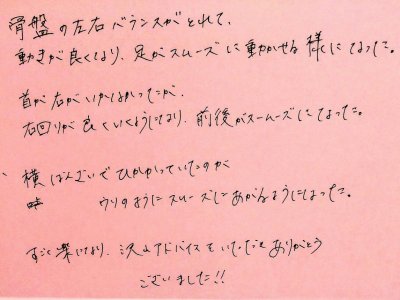 骨盤の左右バランスがとれて、
動きが良くなり、足がスムーズに動かせる様になった。
首が右がいかなかったが、
右回りが良くいくようになり、前後がスームーズになった。
横ばんざいでひっかかっていたのが
ウソのようにスムーズにあがるようになった。
すごく楽になり、沢山アドバイスをいただきありがとう
ございました!!